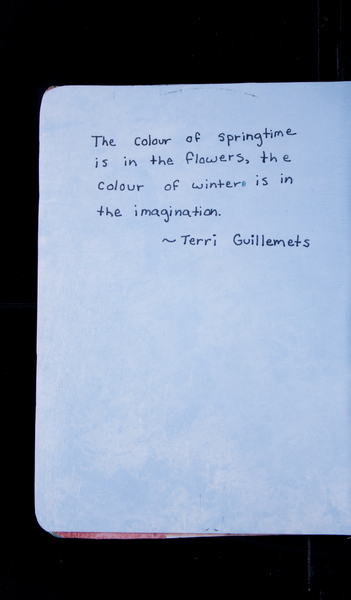 The colour of springtime
is in the flowers, the
colour of winter is in
the imagination.
~ Terri Guillemets